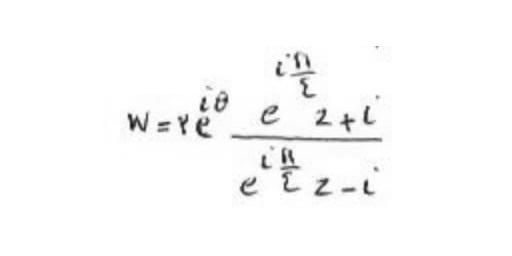 W = ٢e^{iθ} \frac{e^{i\frac{π}{٤}} z + i}{e^{i\frac{π}{٤}} z - i}